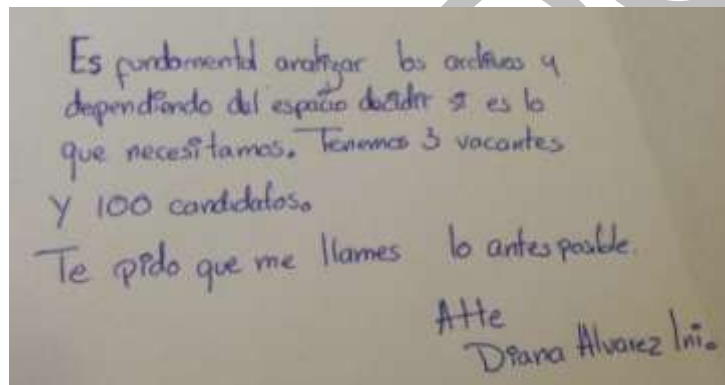 Es fundamental analizar los archivos y
dependiendo del espacio decidir si es lo
que necesitamos. Tenemos 3 vacantes
y 100 candidatos.
Te pido que me llames lo antes posible.
Atte
Diana Alvarez Ini.